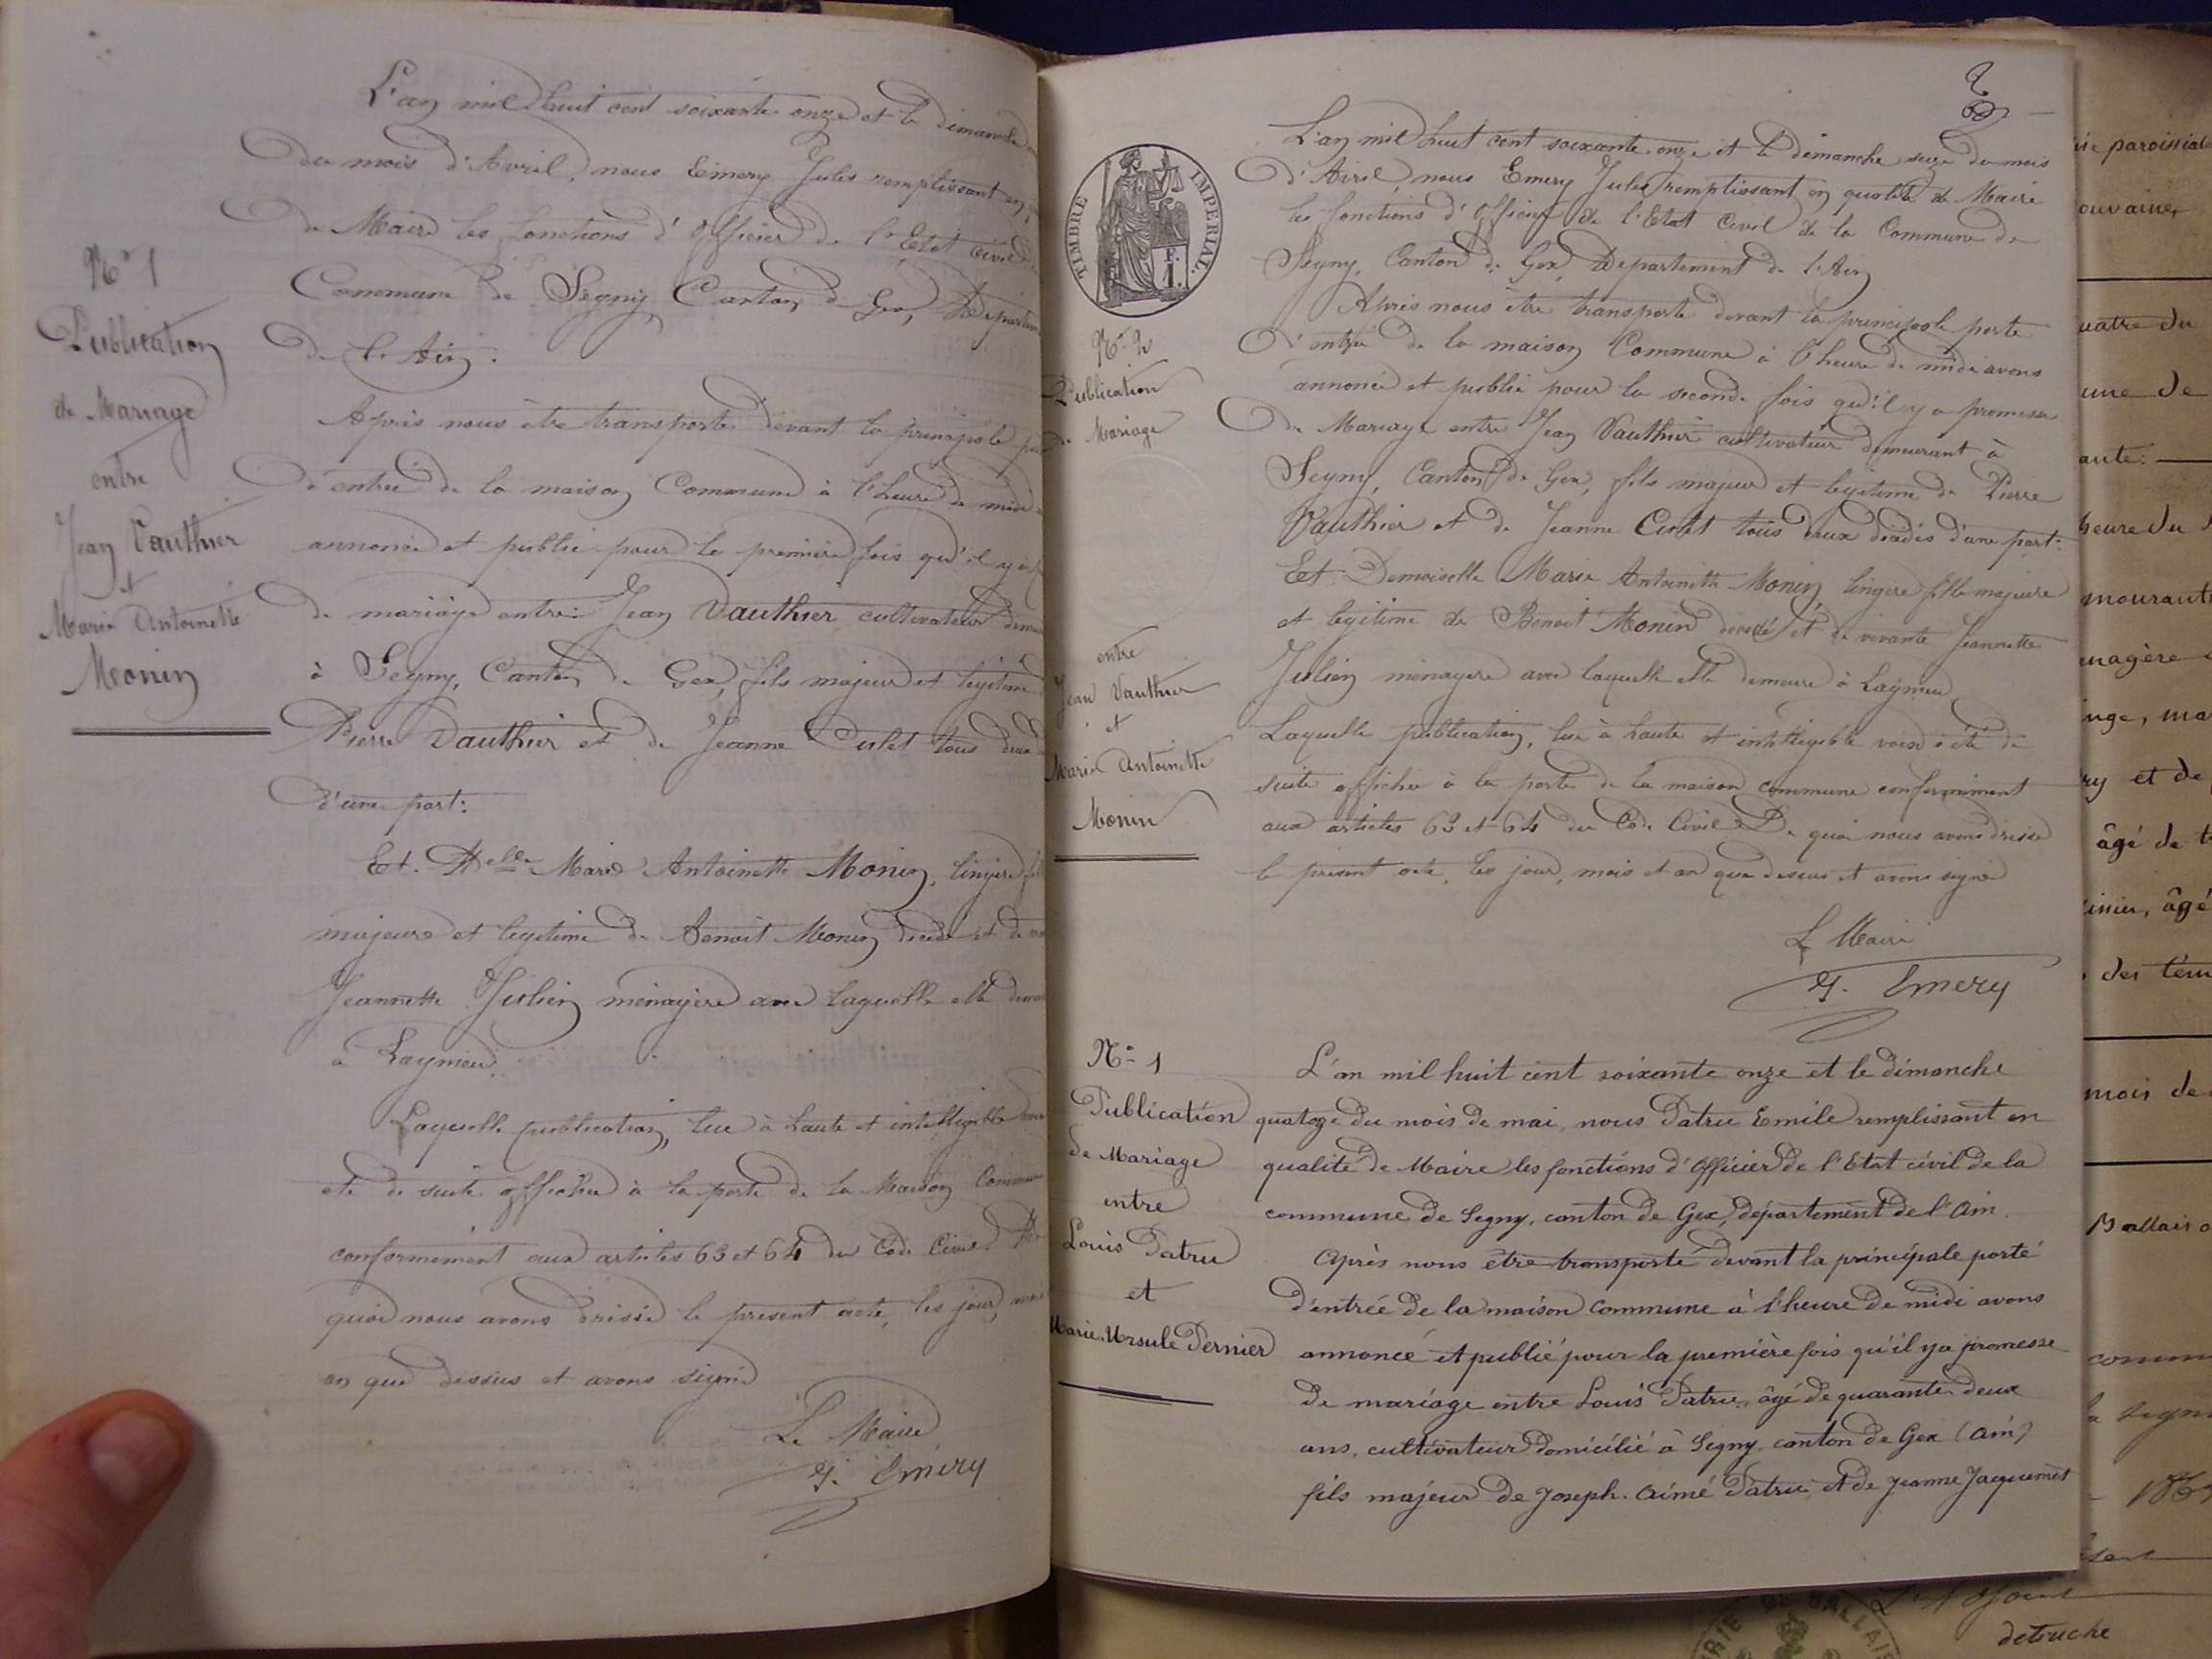 L'an mil huit cent soixante onze et le dimanche
du mois d'Avril, nous Emery Jules remplissant en
de Maire les fonctions d'officier de l'Etat civil
Commune de Segny, Canton de Gex,
de l'Ain.
Après nous être transporté devant la principale
d'entrée de la maison Commune à l'heure de midi
annoncé et publié pour la première fois qu'il y a
de mariage entre: Jean Vauthier cultivateur
à Segny, Canton de Gex, fils majeur et légitime
Pierre Vauthier et de Jeanne Culet tous deux
d'une part:
Et. Melle Marie Antoinette Monin, lingère
majeure et legitime de Benoit Monin décédé et de
Jeannette Julien ménagère avec laquelle elle
à Laymieu.
Laquelle publication, lue à haute et intelligible
été de suite affichée à la porte de la Maison Commune
conformément aux articles 63 et 64 du Code Civil.
quoi nous avons dressé le présent acte, les jour,
an que dessus et avons signé
Le Maire
J. Emery
N° 1
Publication
de Mariage
entre
Jean Vauthier
et
Marie Antoinette
Monin
TIMBRE IMPERIAL.
F.
1.
L'an mil huit cent soixante onze et le dimanche seize du mois
d'Avril, nous Emery Jules remplissant en qualité de Maire
les fonctions d'officier de l'Etat Civil de la Commune de
Segny, Canton de Gex Departement de l'Ain
Après nous être transporté devant la principale porte
d'entrée de la maison Commune à l'heure de midi avons
annoncé et publié pour la seconde fois qu'il y a promesse
de Mariage entre Jean Vauthier cultivateur demeurant à
Segny, Canton de Gex, fils majeur et legitime de Pierre
Vauthier et de Jeanne Culet tous deux décédés d'une part:
Et Demoiselle Marie Antoinette Monin, lingère fille majeure
et legitime de Benoit Monin décédé et de vivante Jeannette
Julien ménagère avec laquelle elle demeure à Laymieu
Laquelle publication, lue à haute et intelligible voix a été de
suite affichée à la porte de la maison commune conformément
aux articles 63 et 64 du Code Civil De quoi nous avons dressé
le présent acte, les jour, mois et an que dessus et avons signé
Le Maire
J. Emery
N° 2
Publication
de Mariage
entre
Jean Vauthier
et
Marie Antoinette
Monin
N° 1
Publication
de Mariage
entre
Louis Patru
et
Marie Ursule Pernier
L'an mil huit cent soixante onze et le dimanche
quatoze du mois de mai, nous Patru Emile remplissant en
qualité de Maire les fonctions d'Officier de l'Etat civil de la
commune de Segny, canton de Gex, département de l'Ain.
Après nous être transporté devant la principale porte
d'entrée de la maison commune à l'heure de midi avons
annoncé et publié pour la première fois qu'il y a promesse
de mariage entre Louis Patru, âgé de quarante deux
ans, cultivateur domicilié à Segny, canton de Gex (Ain)
fils majeur de Joseph. Aimé Patru et de Jeanne Jaquemet
ouvaine,
une de
heure du
mourant
ry et de
âgé de
âgé
des tém
mois de
Ballais
detruche